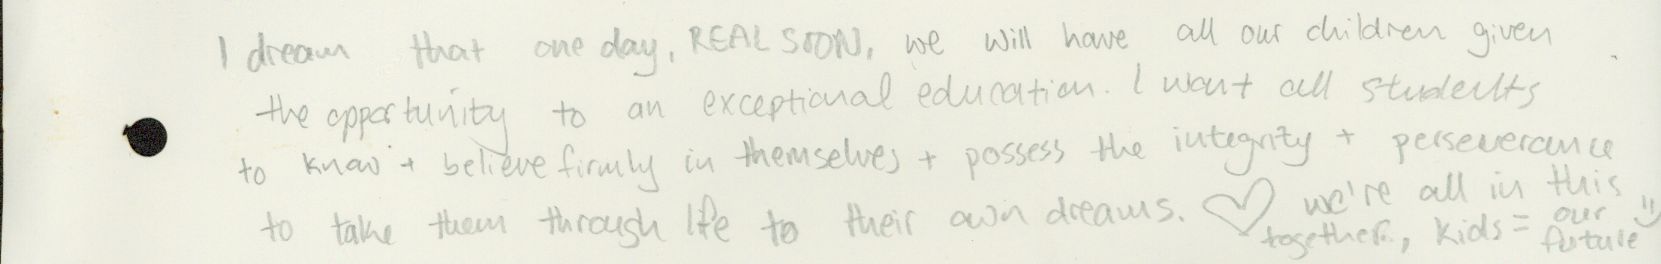 I dream that one day, REAL SOON, we will have all our children given
the opportunity to an exceptional education. I want all students
to know + believe firmly in themselves + possess the integrity + perseverance
to take them through life to their own dreams. ♡ we're all in this
together, kids = our future :)